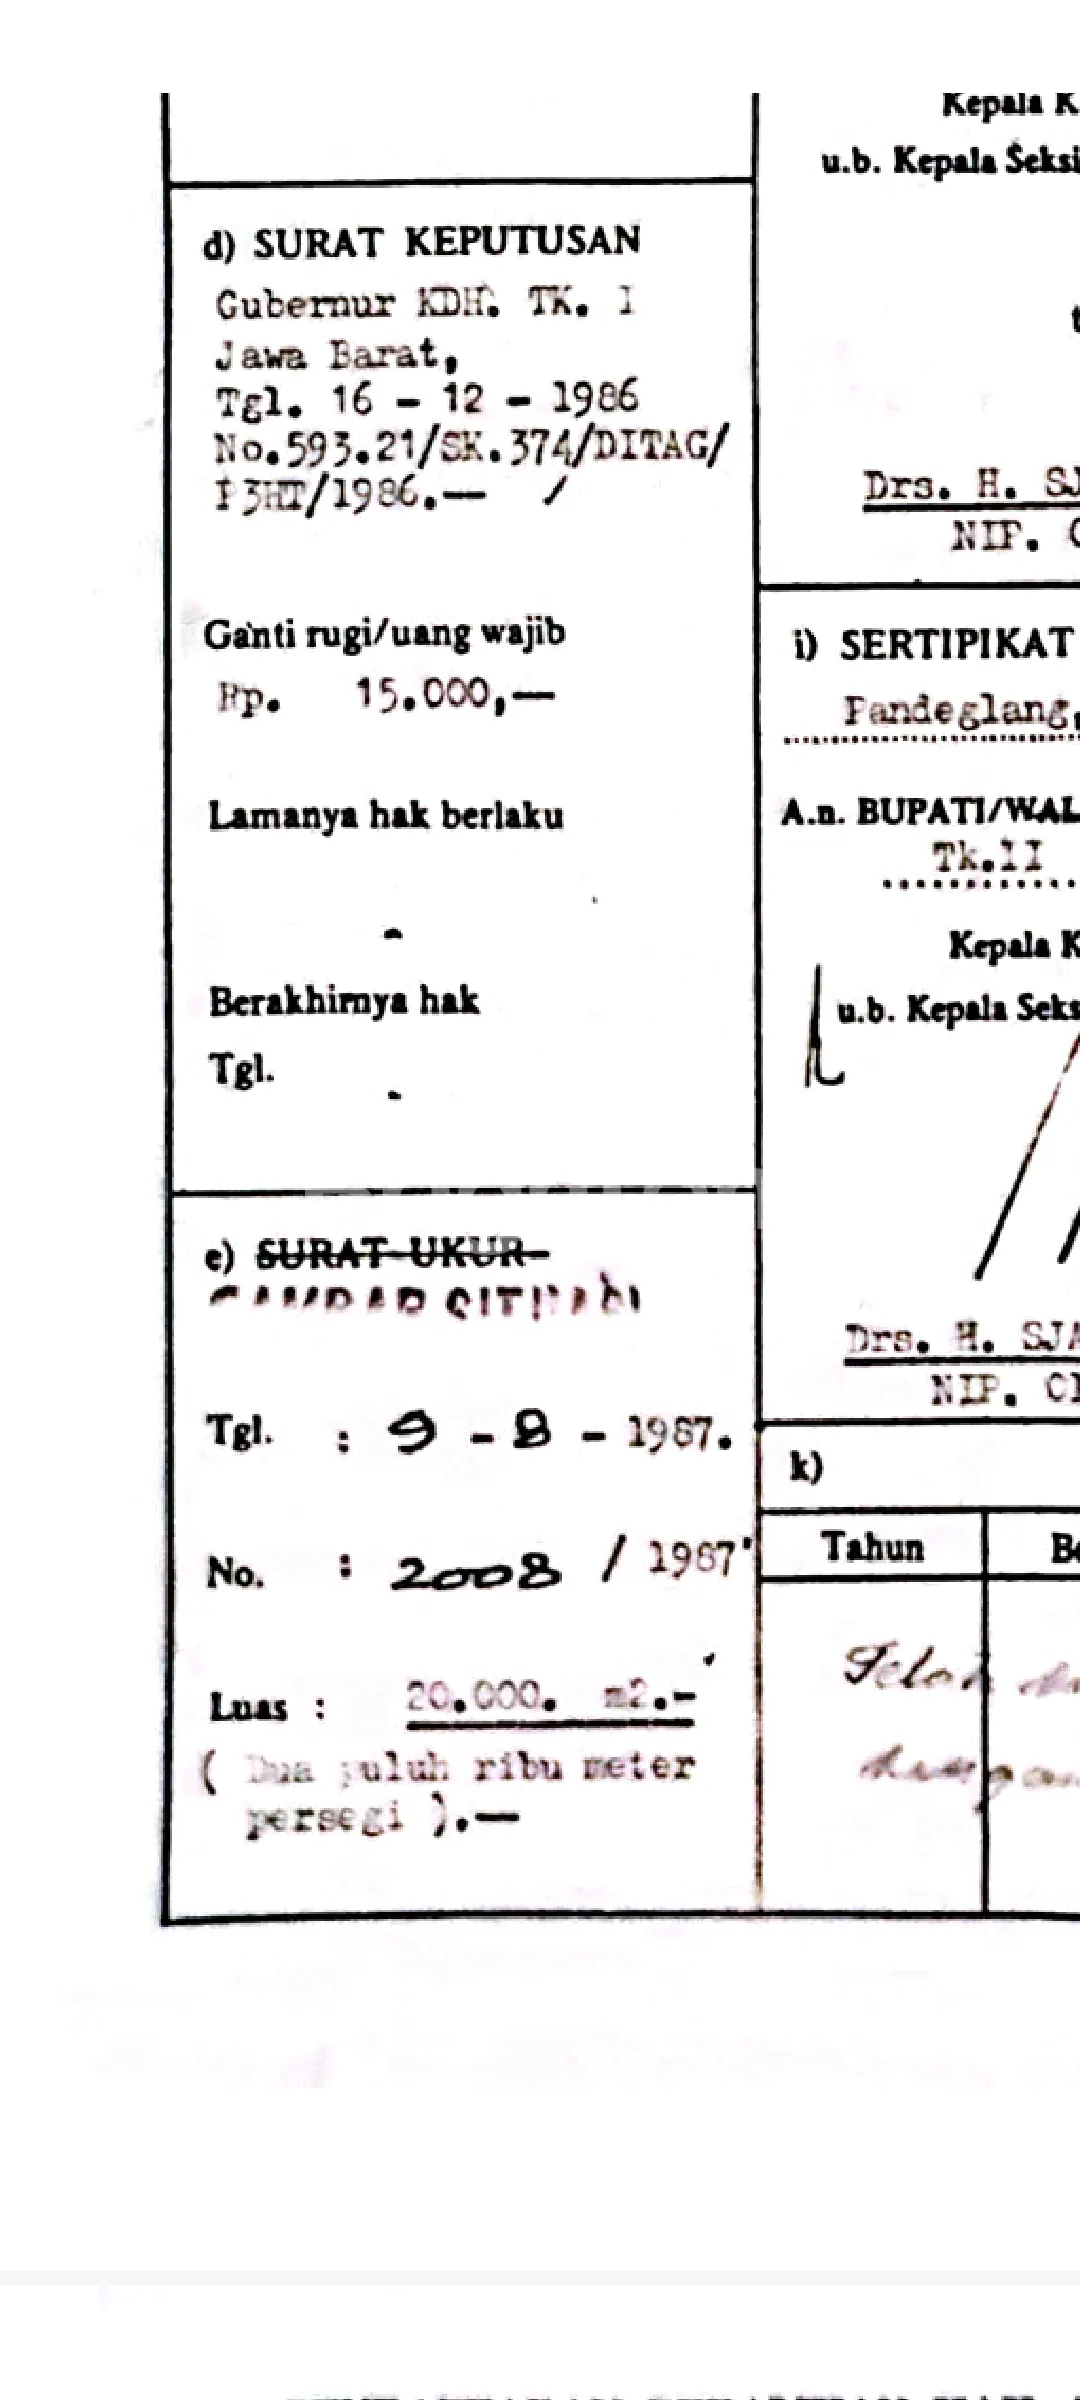 Kepala K
u.b. Kepala Seksi
d) SURAT KEPUTUSAN
Gubernur KDH. TK. I
Jawa Barat,
Tgl. 16 - 12 - 1986
No.593.21/SK.374/DITAG/
P3HT/1986.— /
Drs. H. SJ
NIP.
Ganti rugi/uang wajib
Rp. 15.000,—
Lamanya hak berlaku
-
Berakhirnya hak
Tgl. -
i) SERTIPIKAT
Pandeglang,
A.n. BUPATI/WAL
Tk.II
Kepala K
u.b. Kepala Seks
Drs. H. SJA
NIP.
e) SURAT UKUR
GAMBAR SITUASI
Tgl. : 9 - 8 - 1987.
No. : 2008 / 1987
Luas : 20.000. m2.-
( Dua puluh ribu meter
persegi ).—
k)
Tahun
Telah
dengan